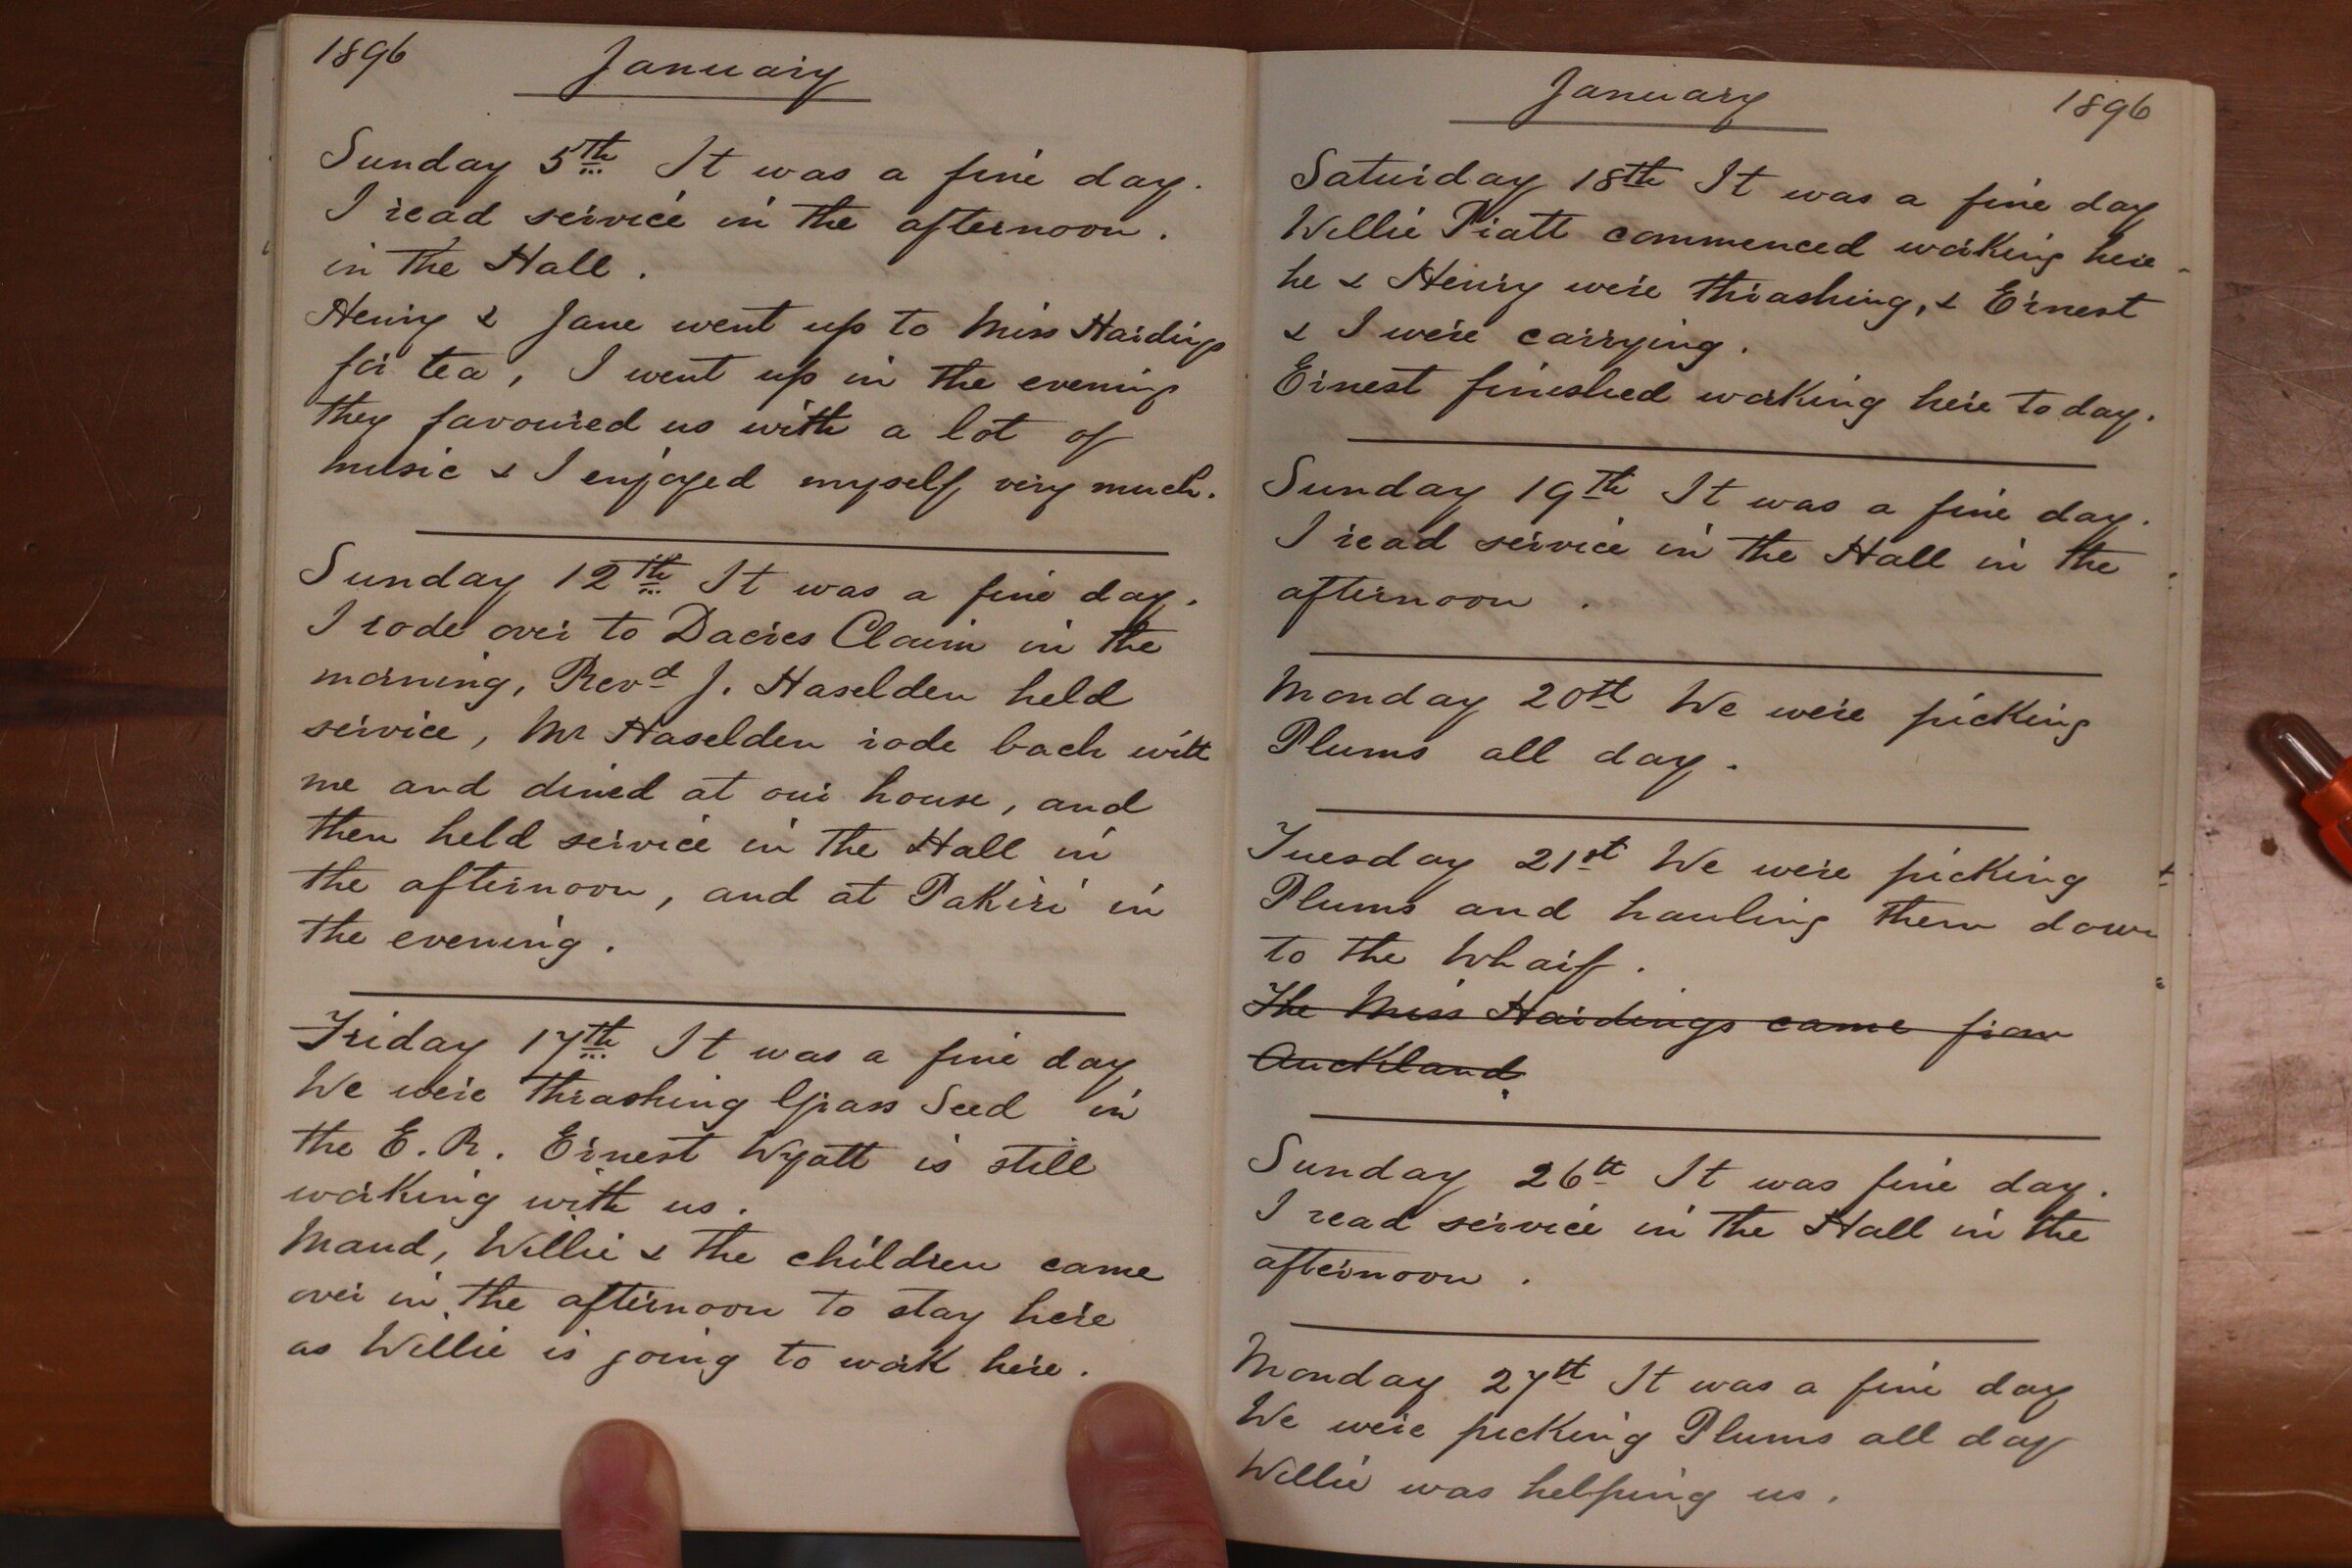 1896 January
Sunday 5th It was a fine day.
I read service in the afternoon.
in the Hall.
Henry & Jane went up to Miss Hardings
for tea, I went up in the evening
they favoured us with a lot of
music & I enjoyed myself very much.
Sunday 12th It was a fine day.
I rode over to Dacres Claim in the
morning, Revd J. Haselden held
service, Mr Haselden rode back with
me and dined at our house, and
then held service in the Hall in
the afternoon, and at Pakiri in
the evening.
Friday 17th It was a fine day
We were thrashing Grass Seed in
the E. R. Ernest Wyatt is still
working with us.
Maud, Willie & the children came
over in the afternoon to stay here
as Willie is going to work here.
January 1896
Saturday 18th It was a fine day
Willie Pratt commenced working here
he & Henry were thrashing, & Ernest
& I were carrying.
Ernest finished working here today.
Sunday 19th It was a fine day.
I read service in the Hall in the
afternoon.
Monday 20th We were picking
Plums all day.
Tuesday 21st We were picking
Plums and hauling them down
to the Wharf.
The Miss Hardings came from
Auckland.
Sunday 26th It was fine day.
I read service in the Hall in the
afternoon.
Monday 27th It was a fine day
We were picking Plums all day
Willie was helping us.